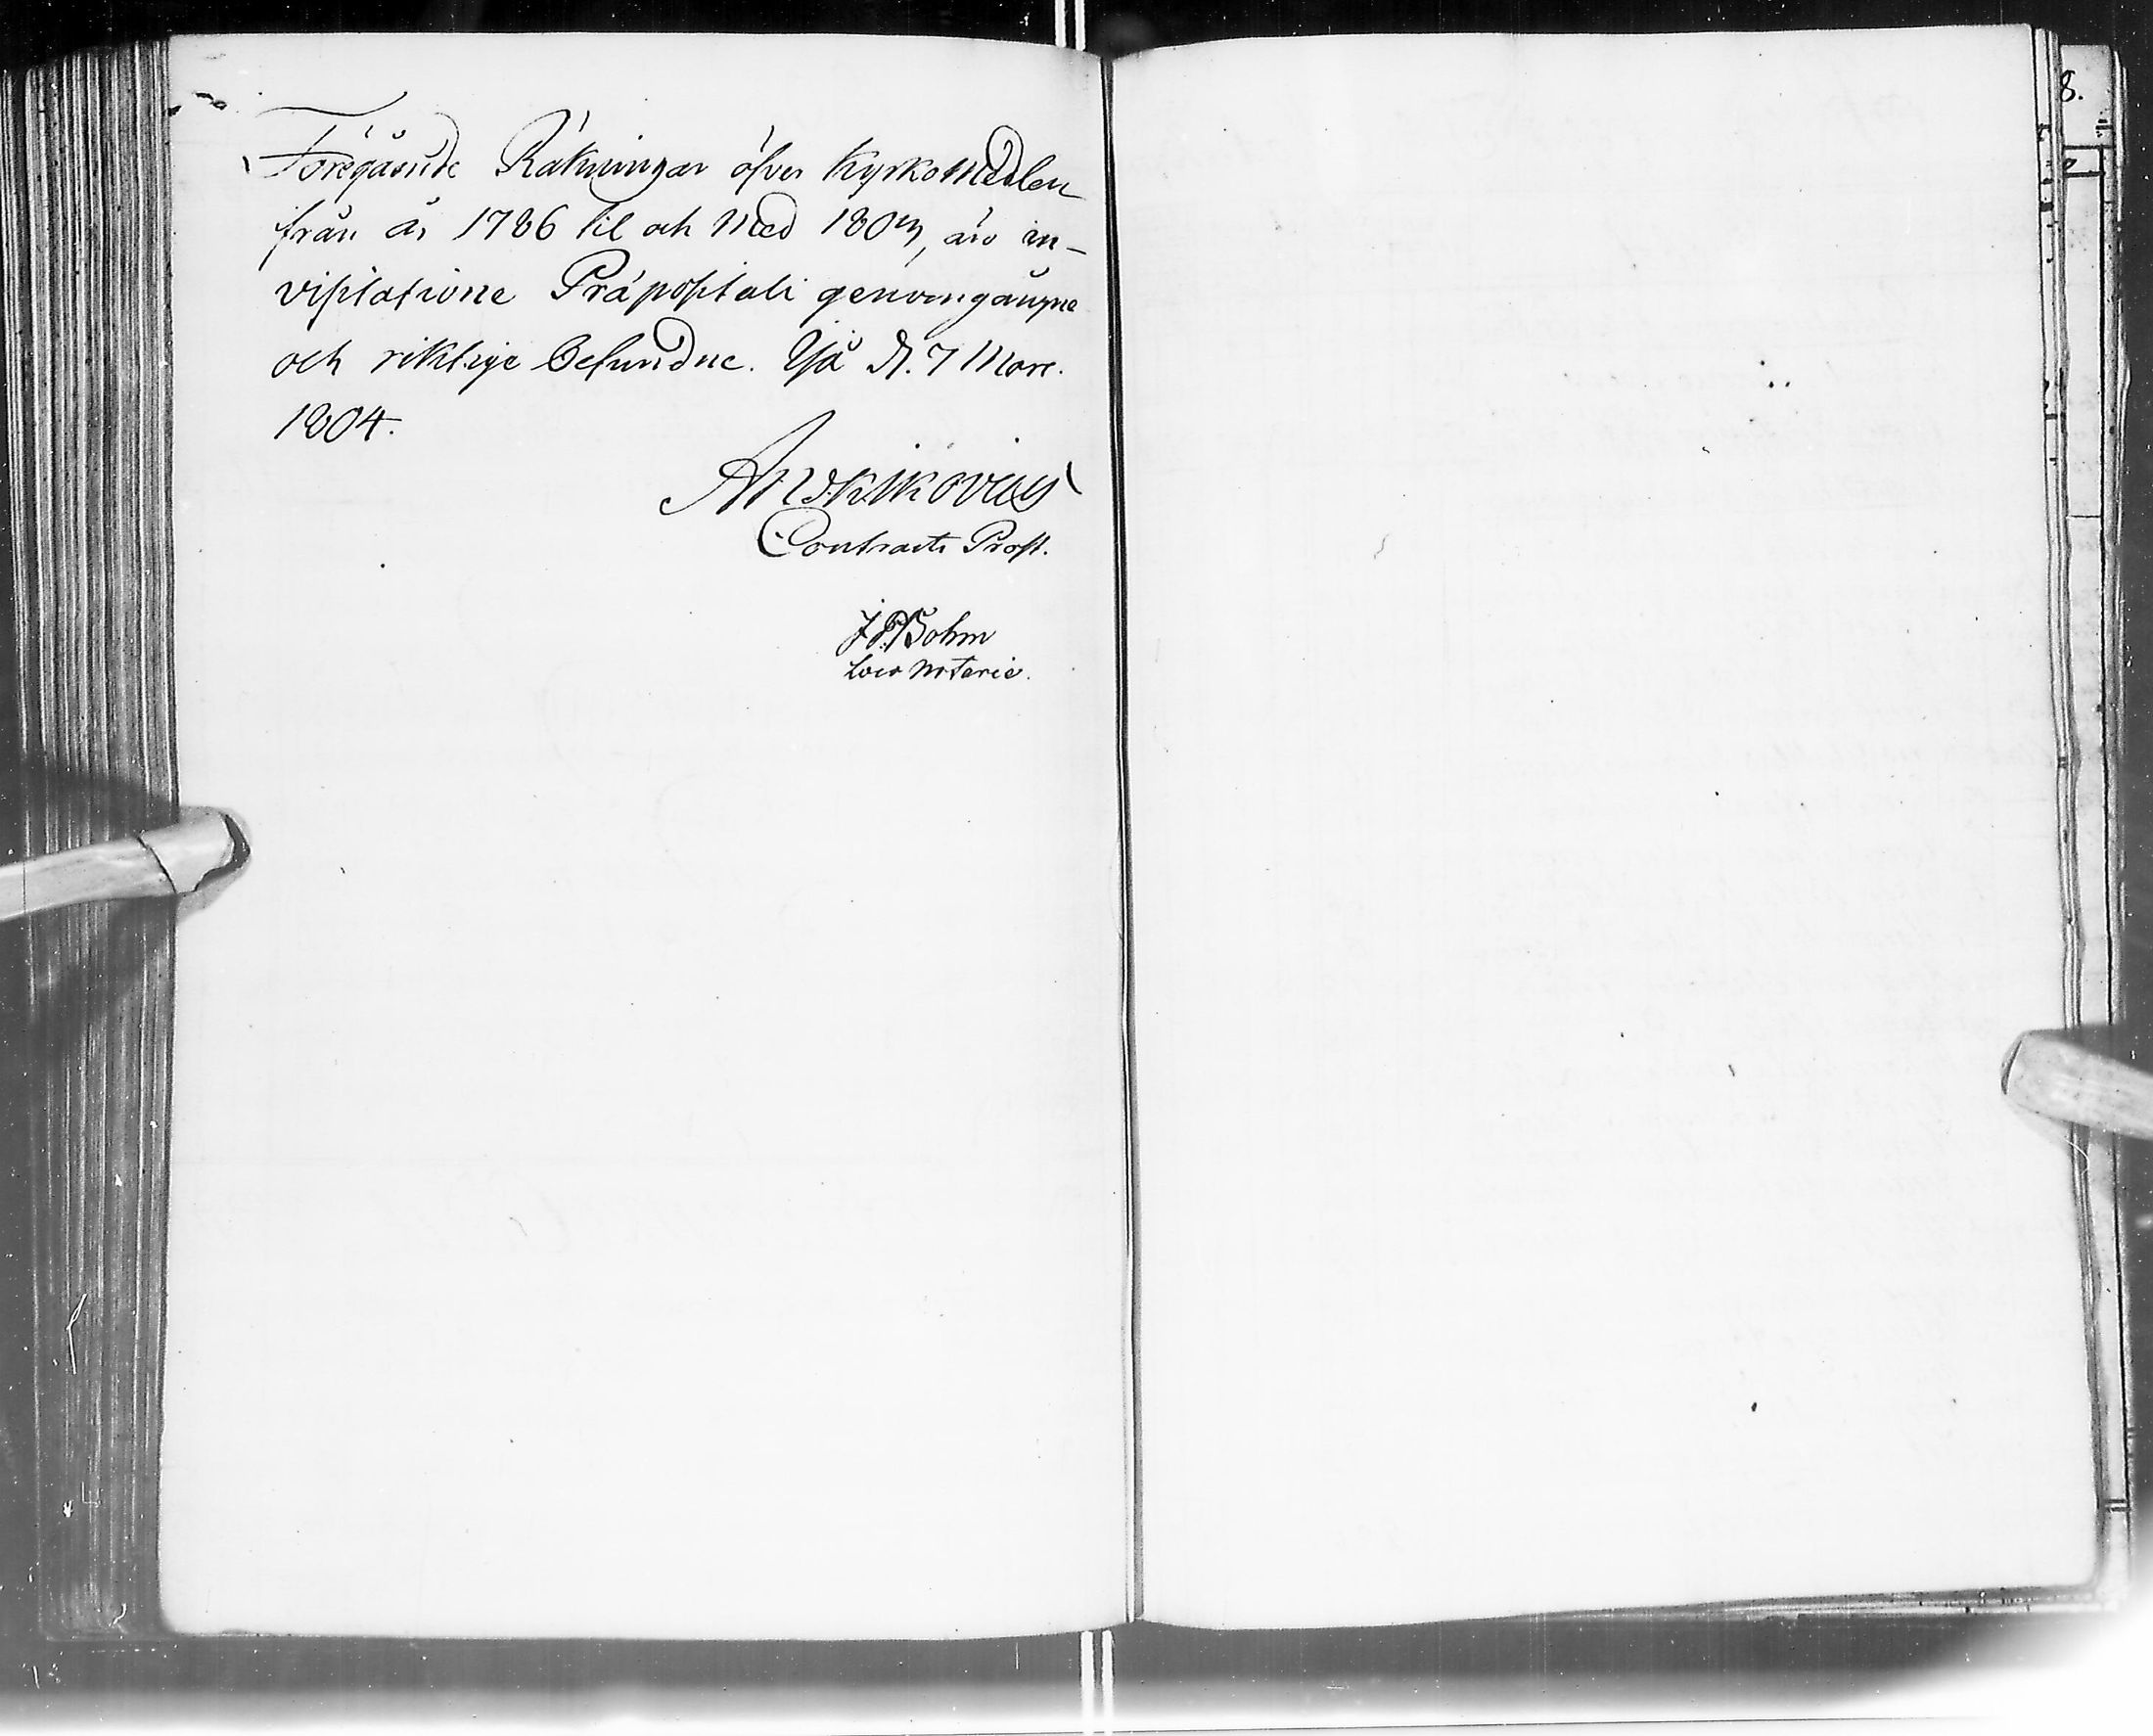 Föregående Räkningar öfver Kyrkomedlen
från år 1786 til och med 1803, äro in-
visitatione Präpositali genomgångne
och riktige befundne. Ijå d. 7 Mart.
1804.
And. Kikovius
Contracts Prost.
J. P. Bohm
loco Notarii.
8.